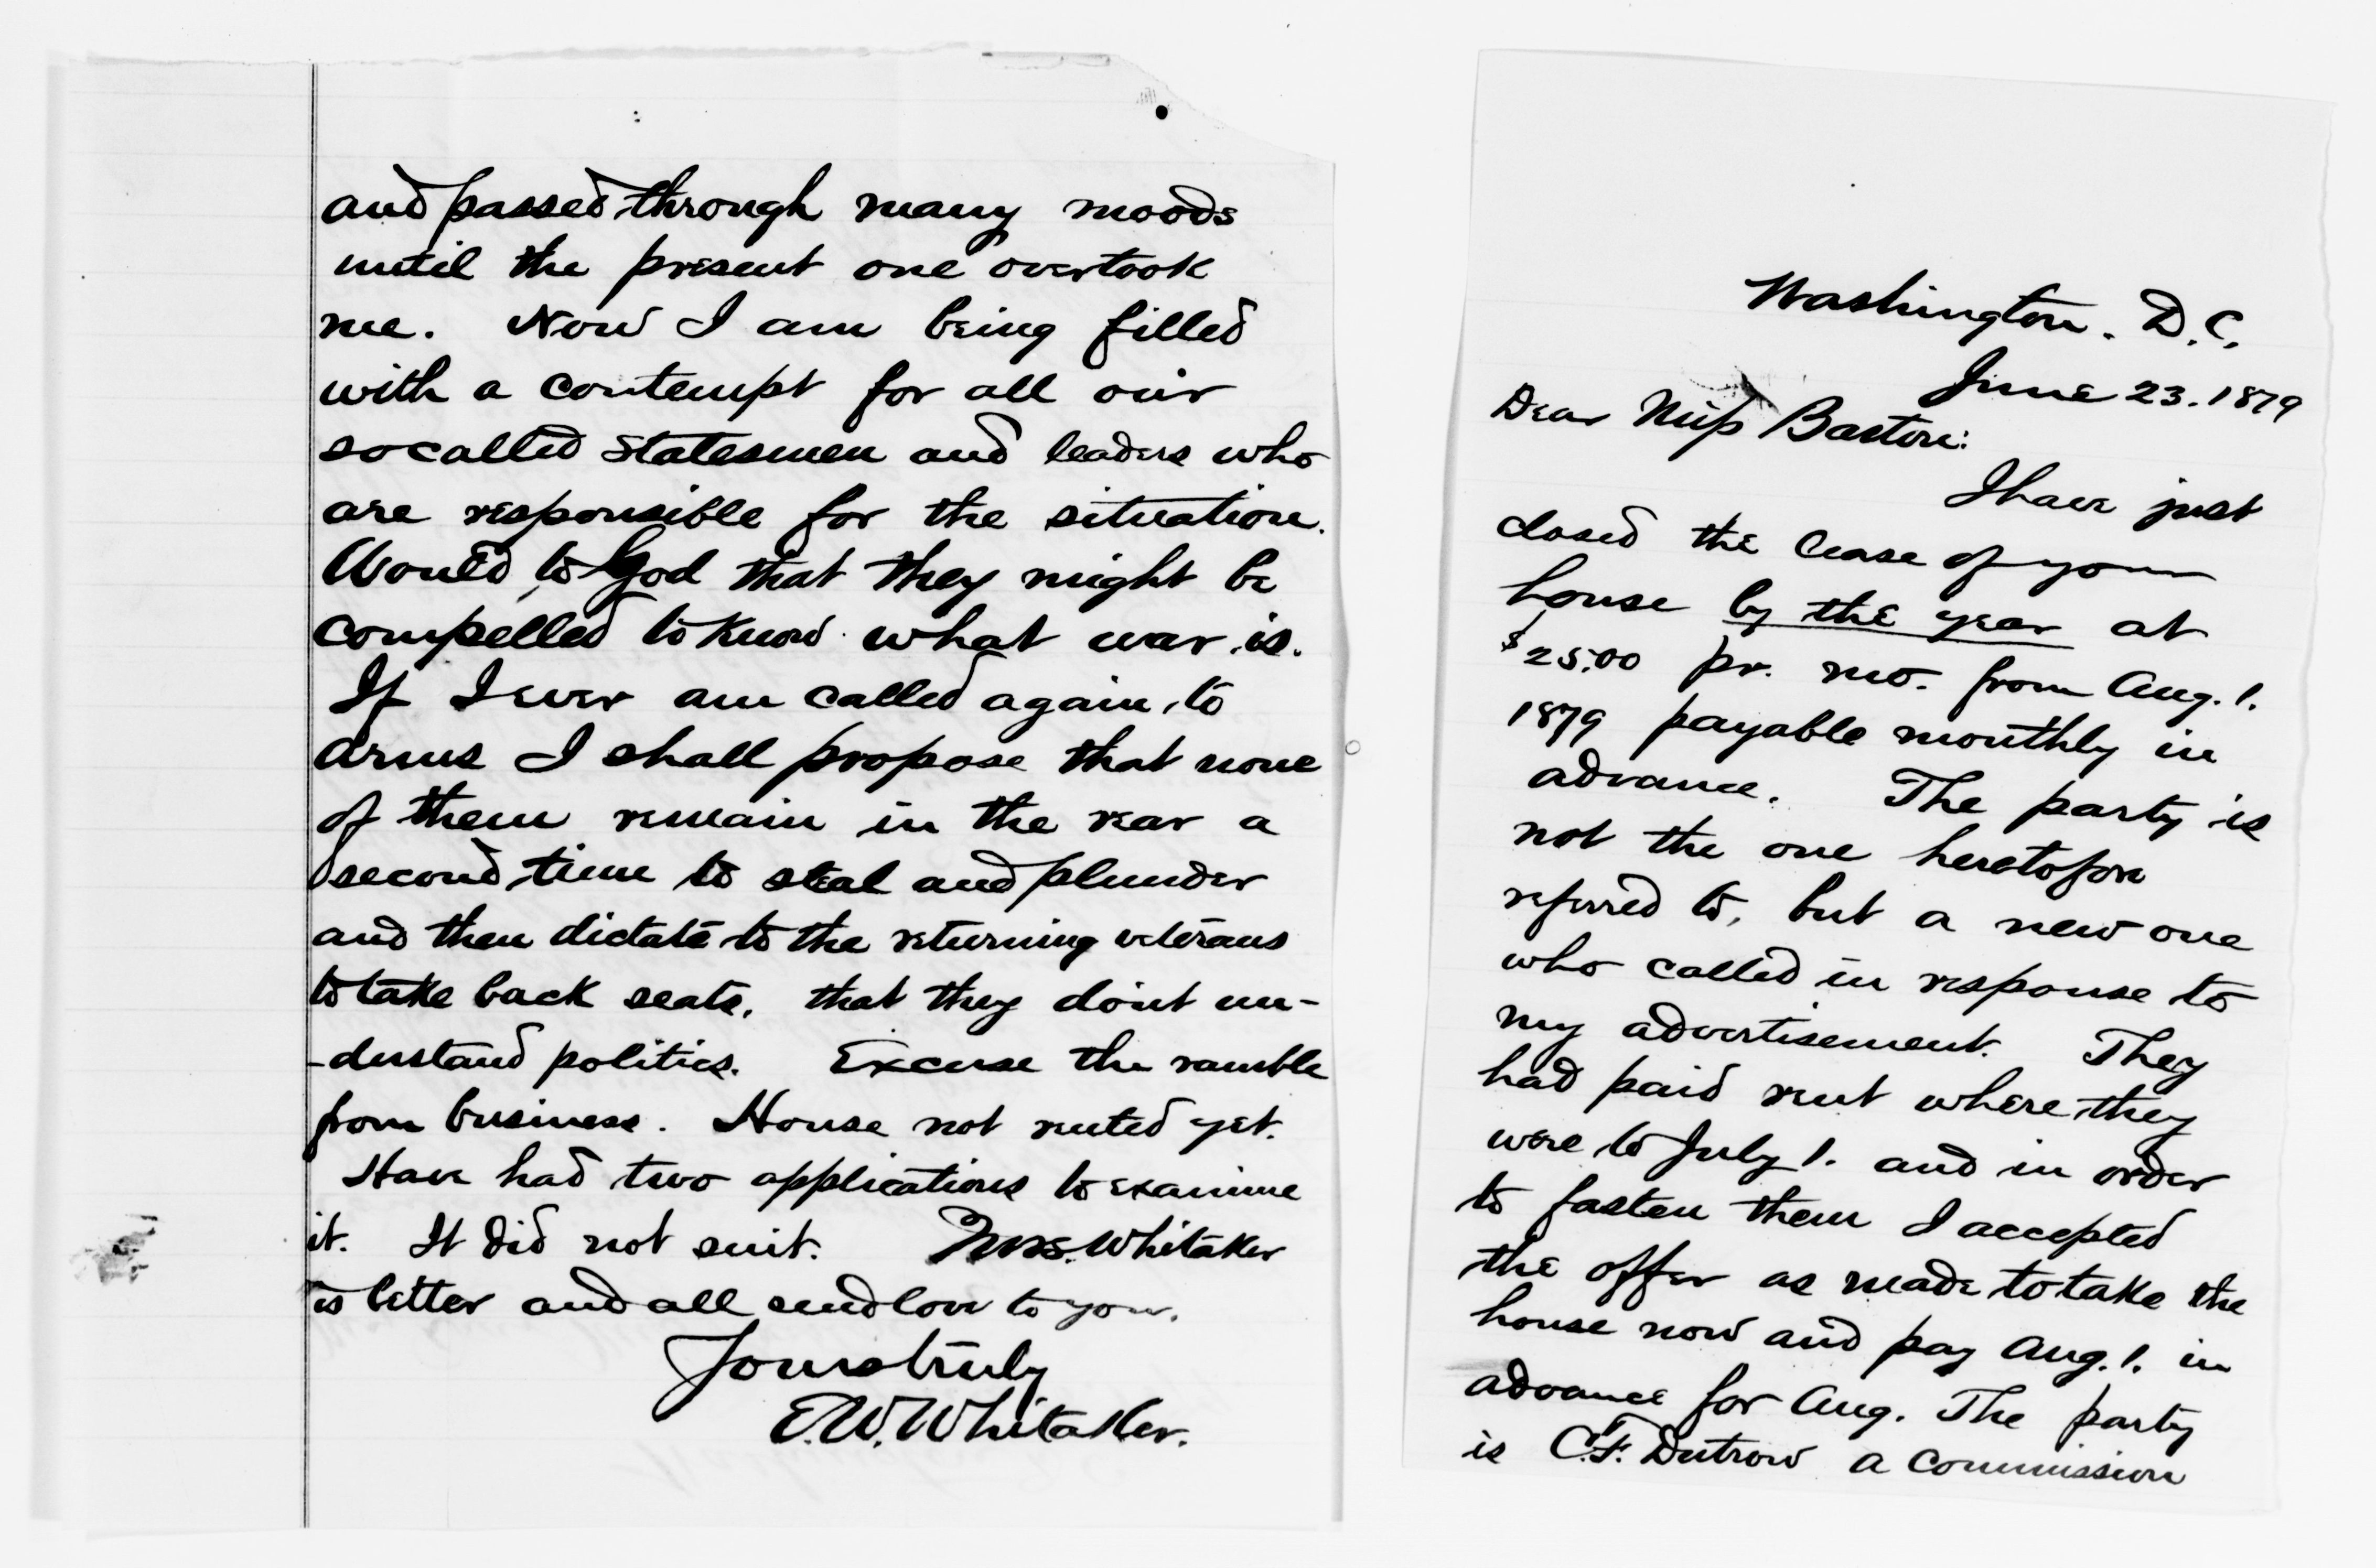 and passed through many moods
until the present one overtook
me. Now I am being filled
with a contempt for all our
socalled statesmen and leaders who
are responsible for the situation.
Would to God that they might be
compelled to know what war is.
If I ever am called again, to
arms I shall propose that none
of them remain in the rear a
second time to steal and plunder
and then dictate to the returning veterans
to take back seats, that they dont un-
-derstand politics. Excuse the ramble
from business. House not rented yet.
Have had two applications to examine
it. It did not suit. Mrs. Whitaker
is better and all send love to you.
Yours truly
E.W. Whitaker.
Washington. D.C.
June 23. 1879
Dear Miss Barton:
I have just
closed the lease of your
house by the year at
$25.00 pr. mo. from Aug. 1.
1879 payable monthly in
advance. The party is
not the one heretofore
referred to, but a new one
who called in response to
my advertisement. They
had paid rent where they
were to July 1. and in order
to fasten them I accepted
the offer as made to take the
house now and pay Aug. 1. in
advance for Aug. The party
is C.F. Dutrow a commission